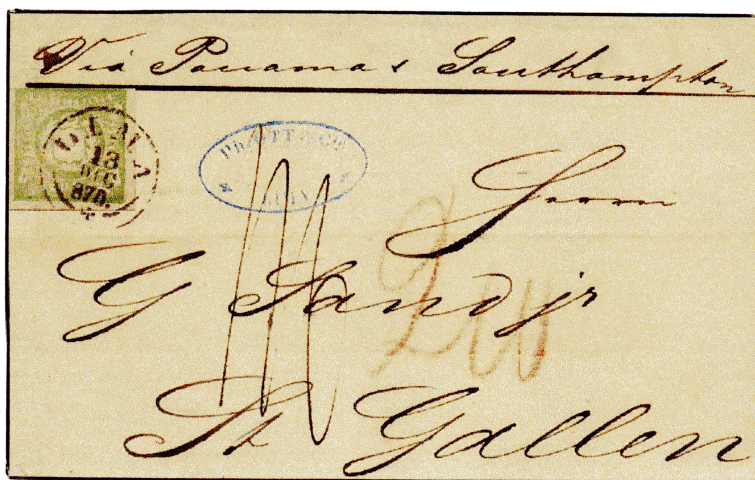 Via Panama & Southampton
LIMA
13
DIC
870.
Ph. OTT & CO
LIMA
Herrn
G Sand jr
St Gallen